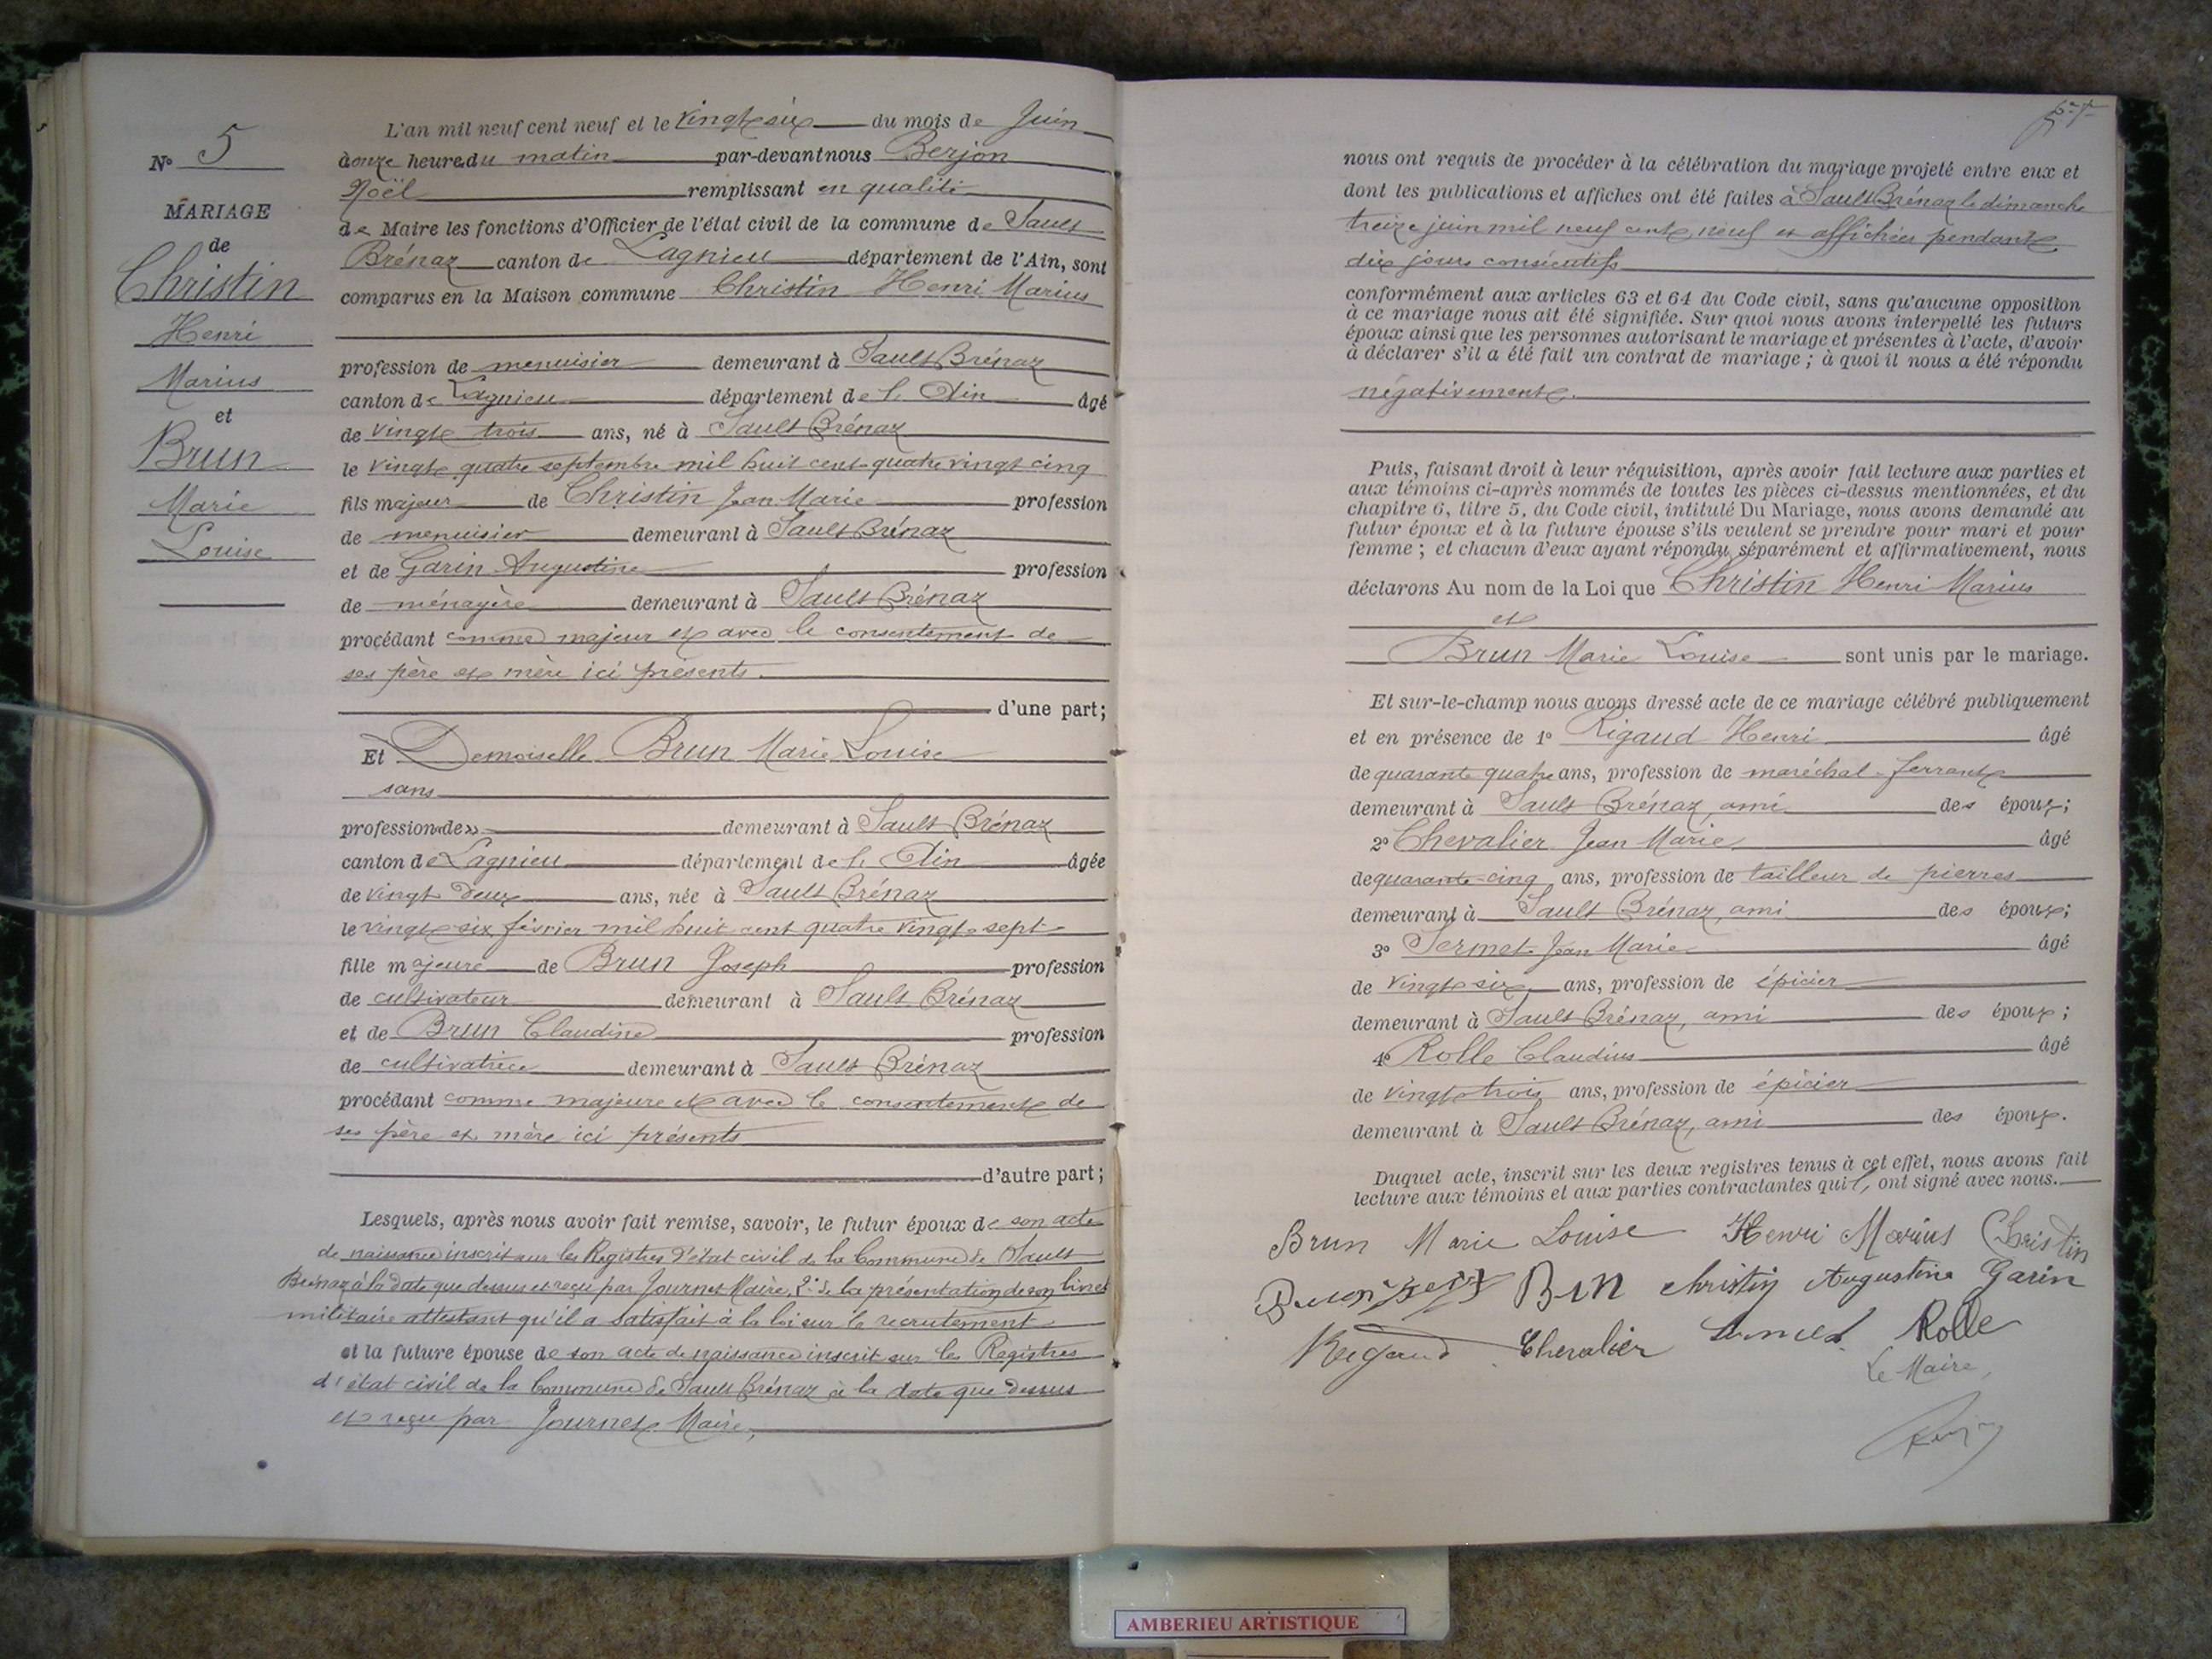 N° 5
MARIAGE
de
Christin
Henri
Marius
et
Brun
Marie
Louise
L'an mil neuf cent neuf et le vingt six du mois de Juin
à onze heures du matin par-devant nous Berjon
Noël remplissant en qualité
de Maire les fonctions d'Officier de l'état civil de la commune de Sault
Brénaz canton de Lagnieu département de l'Ain, sont
comparus en la Maison commune Christin Henri Marius
profession de menuisier demeurant à Sault Brénaz
canton de Lagnieu département de l'Ain âgé
de vingt trois ans, né à Sault Brénaz
le vingt quatre septembre mil huit cent quatre vingt cinq
fils majeur de Christin Jean Marie profession
de menuisier demeurant à Sault Brénaz
et de Garin Augustine profession
de ménagère demeurant à Sault Brénaz
procédant comme majeur et avec le consentement de
ses père et mère ici présents.
d'une part;
Et Demoiselle Brun Marie Louise
sans
profession «de» demeurant à Sault Brénaz
canton de Lagnieu département de l'Ain âgée
de vingt deux ans, née à Sault Brénaz
le vingt six février mil huit cent quatre vingt sept
fille majeure de Brun Joseph profession
de cultivateur demeurant à Sault Brénaz
et de Brun Claudine profession
de cultivatrice demeurant à Sault Brénaz
procédant comme majeure et avec le consentement de
ses père et mère ici présents
d'autre part;
Lesquels, après nous avoir fait remise, savoir, le futur époux de son acte
de naissance inscrit sur les Registres d'état civil de la Commune de Sault
Brénaz à la date que dessus et reçu par Journet Maire, 2° de la présentation de son livret
militaire attestant qu'il a satisfait à la loi sur le recrutement
et la future épouse de son acte de naissance inscrit sur les Registres
d'état civil de la Commune de Sault Brénaz à la date que dessus
et reçu par Journet Maire,
nous ont requis de procéder à la célébration du mariage projeté entre eux et
dont les publications et affiches ont été faites à Sault Brénaz le dimanche
treize juin mil neuf cent neuf et affichées pendant
dix jours consécutifs
conformément aux articles 63 et 64 du Code civil, sans qu'aucune opposition
à ce mariage nous ait été signifiée. Sur quoi nous avons interpellé les futurs
époux ainsi que les personnes autorisant le mariage et présentes à l'acte, d'avoir
à déclarer s'il a été fait un contrat de mariage; à quoi il nous a été répondu
négativement.
Puis, faisant droit à leur réquisition, après avoir fait lecture aux parties et
aux témoins ci-après nommés de toutes les pièces ci-dessus mentionnées, et du
chapitre 6, titre 5, du Code civil, intitulé Du Mariage, nous avons demandé au
futur époux et à la future épouse s'ils veulent se prendre pour mari et pour
femme; et chacun d'eux ayant répondu séparément et affirmativement, nous
déclarons Au nom de la Loi que Christin Henri Marius
et
Brun Marie Louise sont unis par le mariage.
Et sur-le-champ nous avons dressé acte de ce mariage célébré publiquement
et en présence de 1° Rigaud Henri âgé
de quarante quatre ans, profession de maréchal-ferrant
demeurant à Sault Brénaz, ami des époux;
2° Chevalier Jean Marie âgé
de quarante cinq ans, profession de tailleur de pierres
demeurant à Sault Brénaz, ami des époux;
3° Sermet Jean Marie âgé
de vingt six ans, profession de épicier
demeurant à Sault Brénaz, ami des époux;
4° Rolle Claudius âgé
de vingt trois ans, profession de épicier
demeurant à Sault Brénaz, ami des époux.
Duquel acte, inscrit sur les deux registres tenus à cet effet, nous avons fait
lecture aux témoins et aux parties contractantes qui, ont signé avec nous.
Brun Marie Louise Henri Marius Christin
Christin Augustine Garin
Rigaud Chevalier Sermet Rolle
Le Maire,
AMBERIEU ARTISTIQUE